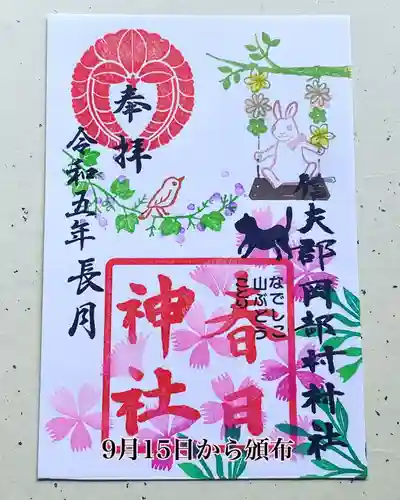 奉拝
信夫郡岡部村村社
なでしこ
山ぶどう
ことり
春日
神社
令和五年長月
9月15日から頒布